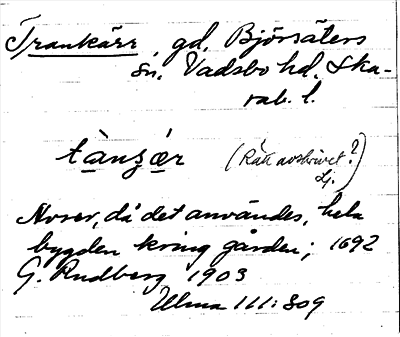 Trankärr, gd, Björsäters
sn. Vadsbo hd. Ska-
rab. l.
tànʒǽr (Rätt avskrivet?
Lj.)
Avser, då det användes, hela
bygden kring gården; 1692
G. Rudberg 1903
Ulma 111:809